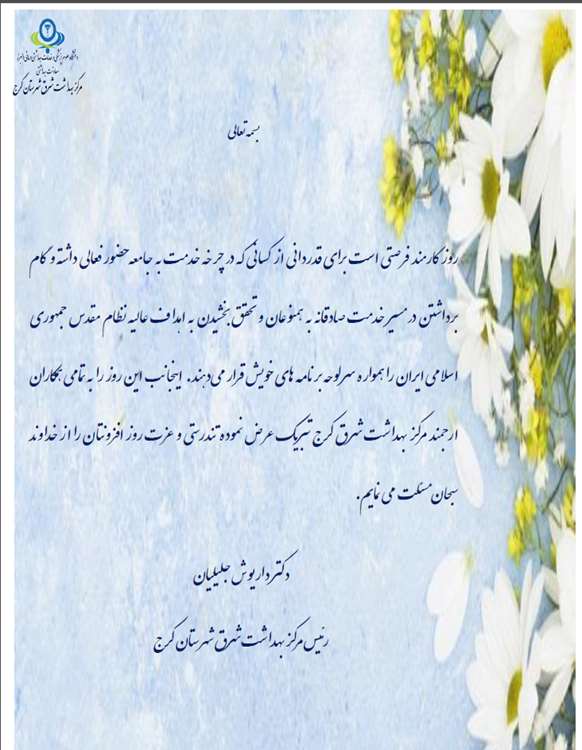 دانشگاه علوم پزشکی و خدمات بهداشتی درمانی البرز
معاونت بهداشتی
مرکز بهداشت شرق شهرستان کرج
بسمه تعالی
روز کارمند فرصتی است برای قدردانی از کسانی که در چرخه خدمت به جامعه حضور فعالی داشته و گام
برداشتن در مسیر خدمت صادقانه به همنوعان و تحقق بخشیدن به اهداف عالیه نظام مقدس جمهوری
اسلامی ایران را همواره سرلوحه برنامه های خویش قرار می‌دهند. اینجانب این روز را به تمامی همکاران
ارجمند مرکز بهداشت شرق کرج تبریک عرض نموده تندرستی و عزت روز افزونتان را از خداوند
سبحان مسئلت می نمایم.
دکتر داریوش جلیلیان
رئیس مرکز بهداشت شرق شهرستان کرج